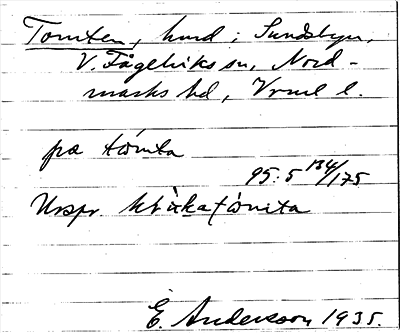 Tomten, hmd i Sundsbyn,
V. Fågelviks sn, Nord-
marks hd, Vrml l.
på tòmta
95:5 134/175
Urspr.
E. Andersson 1935.